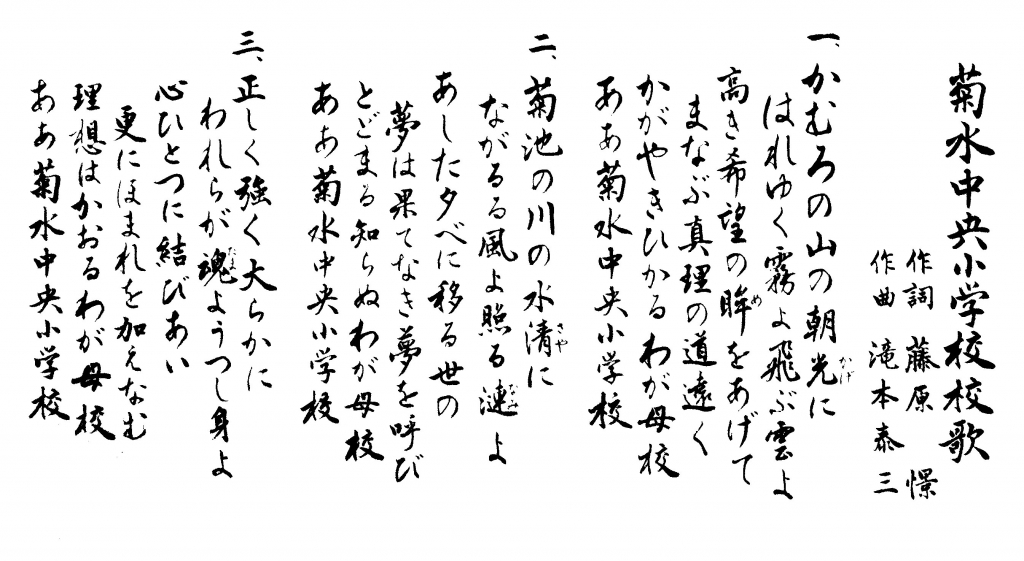 菊水中央小学校校歌
作詞 藤原 憬
作曲 滝本泰三
一、かむろの山の朝光に
かげ
はれゆく霧よ飛ぶ雲よ
高き希望の眸をあげて
め
まなぶ真理の道遠く
かがやきひかるわが母校
ああ菊水中央小学校
二、菊池の川の水清に
さや
ながるる風よ照る漣よ
なみ
あした夕べに移る世の
夢は果てなき夢を呼び
とどまる知らぬわが母校
ああ菊水中央小学校
三、正しく強く大らかに
われらが魂ようつし身よ
たま
心ひとつに結びあい
更にほまれを加えなむ
理想はかおるわが母校
ああ菊水中央小学校